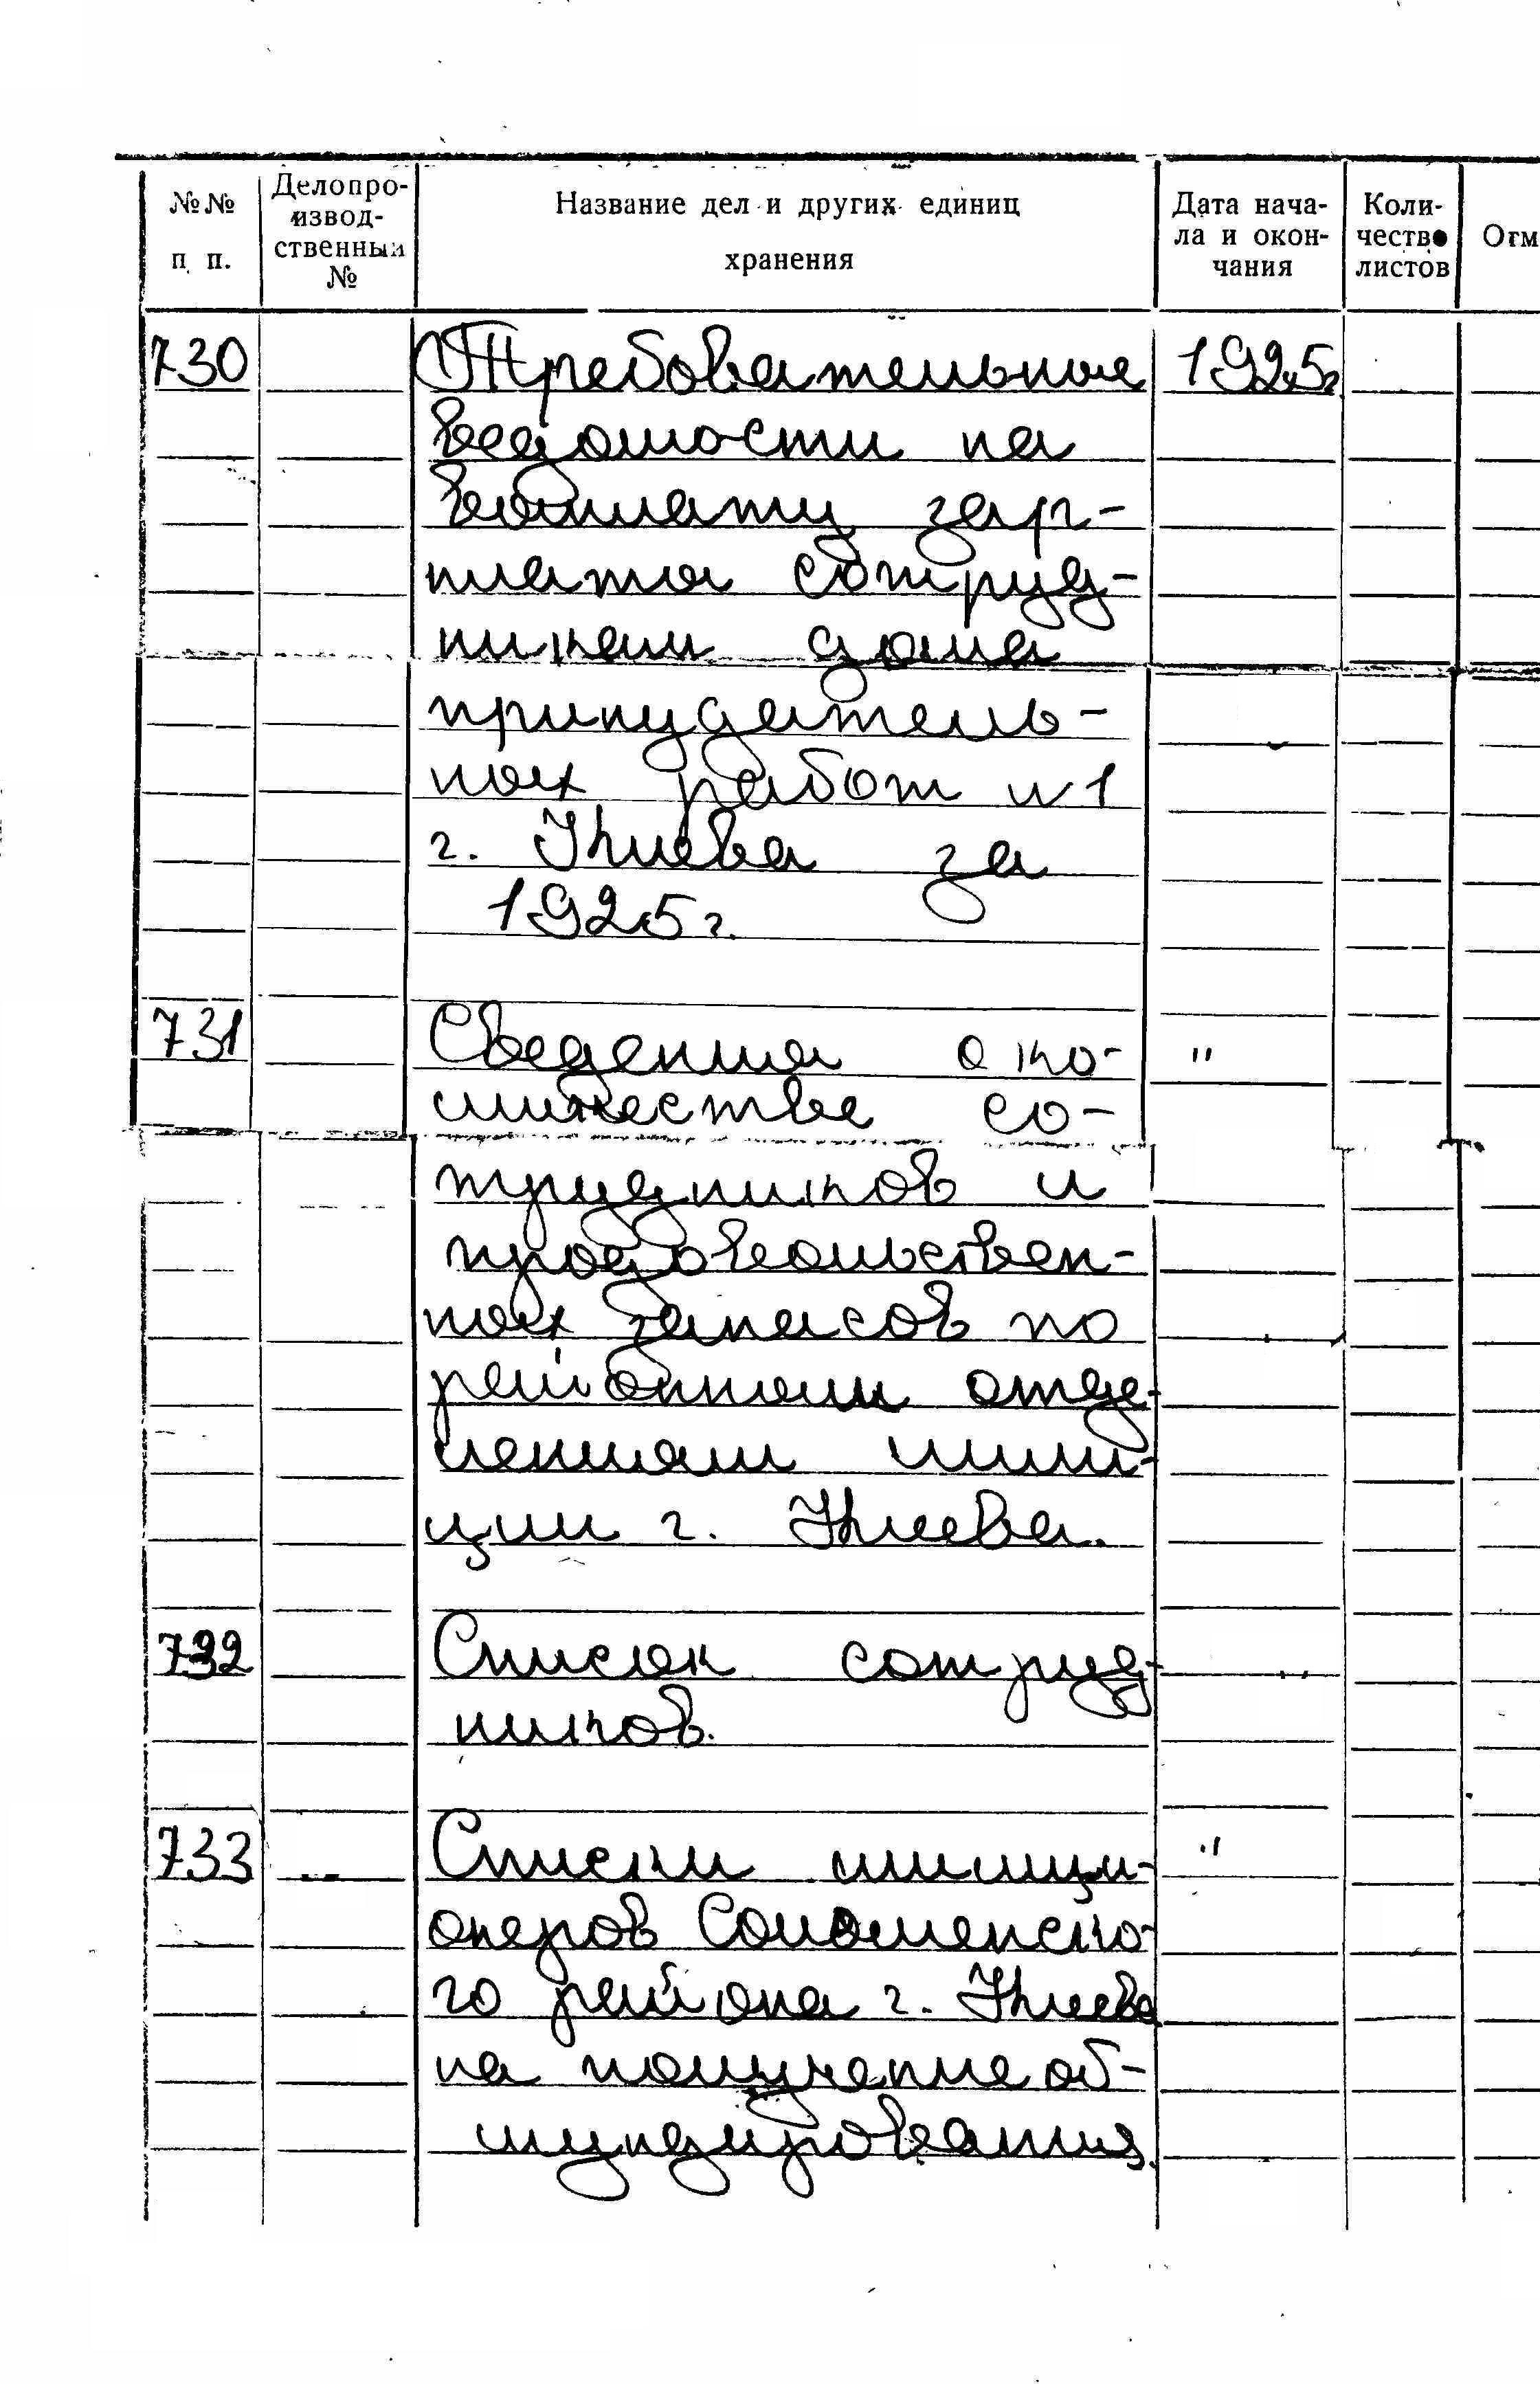 №№ п п.
Делопро-
извод-
ственный
№
Название дел и других единиц
хранения
Дата нача-
ла и окон-
чания
Коли-
чество
листов
Отм
730 Требовательные 1925г
ведомости на
выплату зар-
платы сотруд-
никам дома
принудитель-
ных работ №1
г. Киева за
1925г.
731 Сведения о ко- "
личестве со-
трудников и
продовольствен-
ных запасов по
районным отде-
лениям мили-
ции г. Киева.
732 Список сотруд- "
ников.
733 Списки милици- "
онеров Соломенско-
го района г. Киева
на получение об-
мундирования.